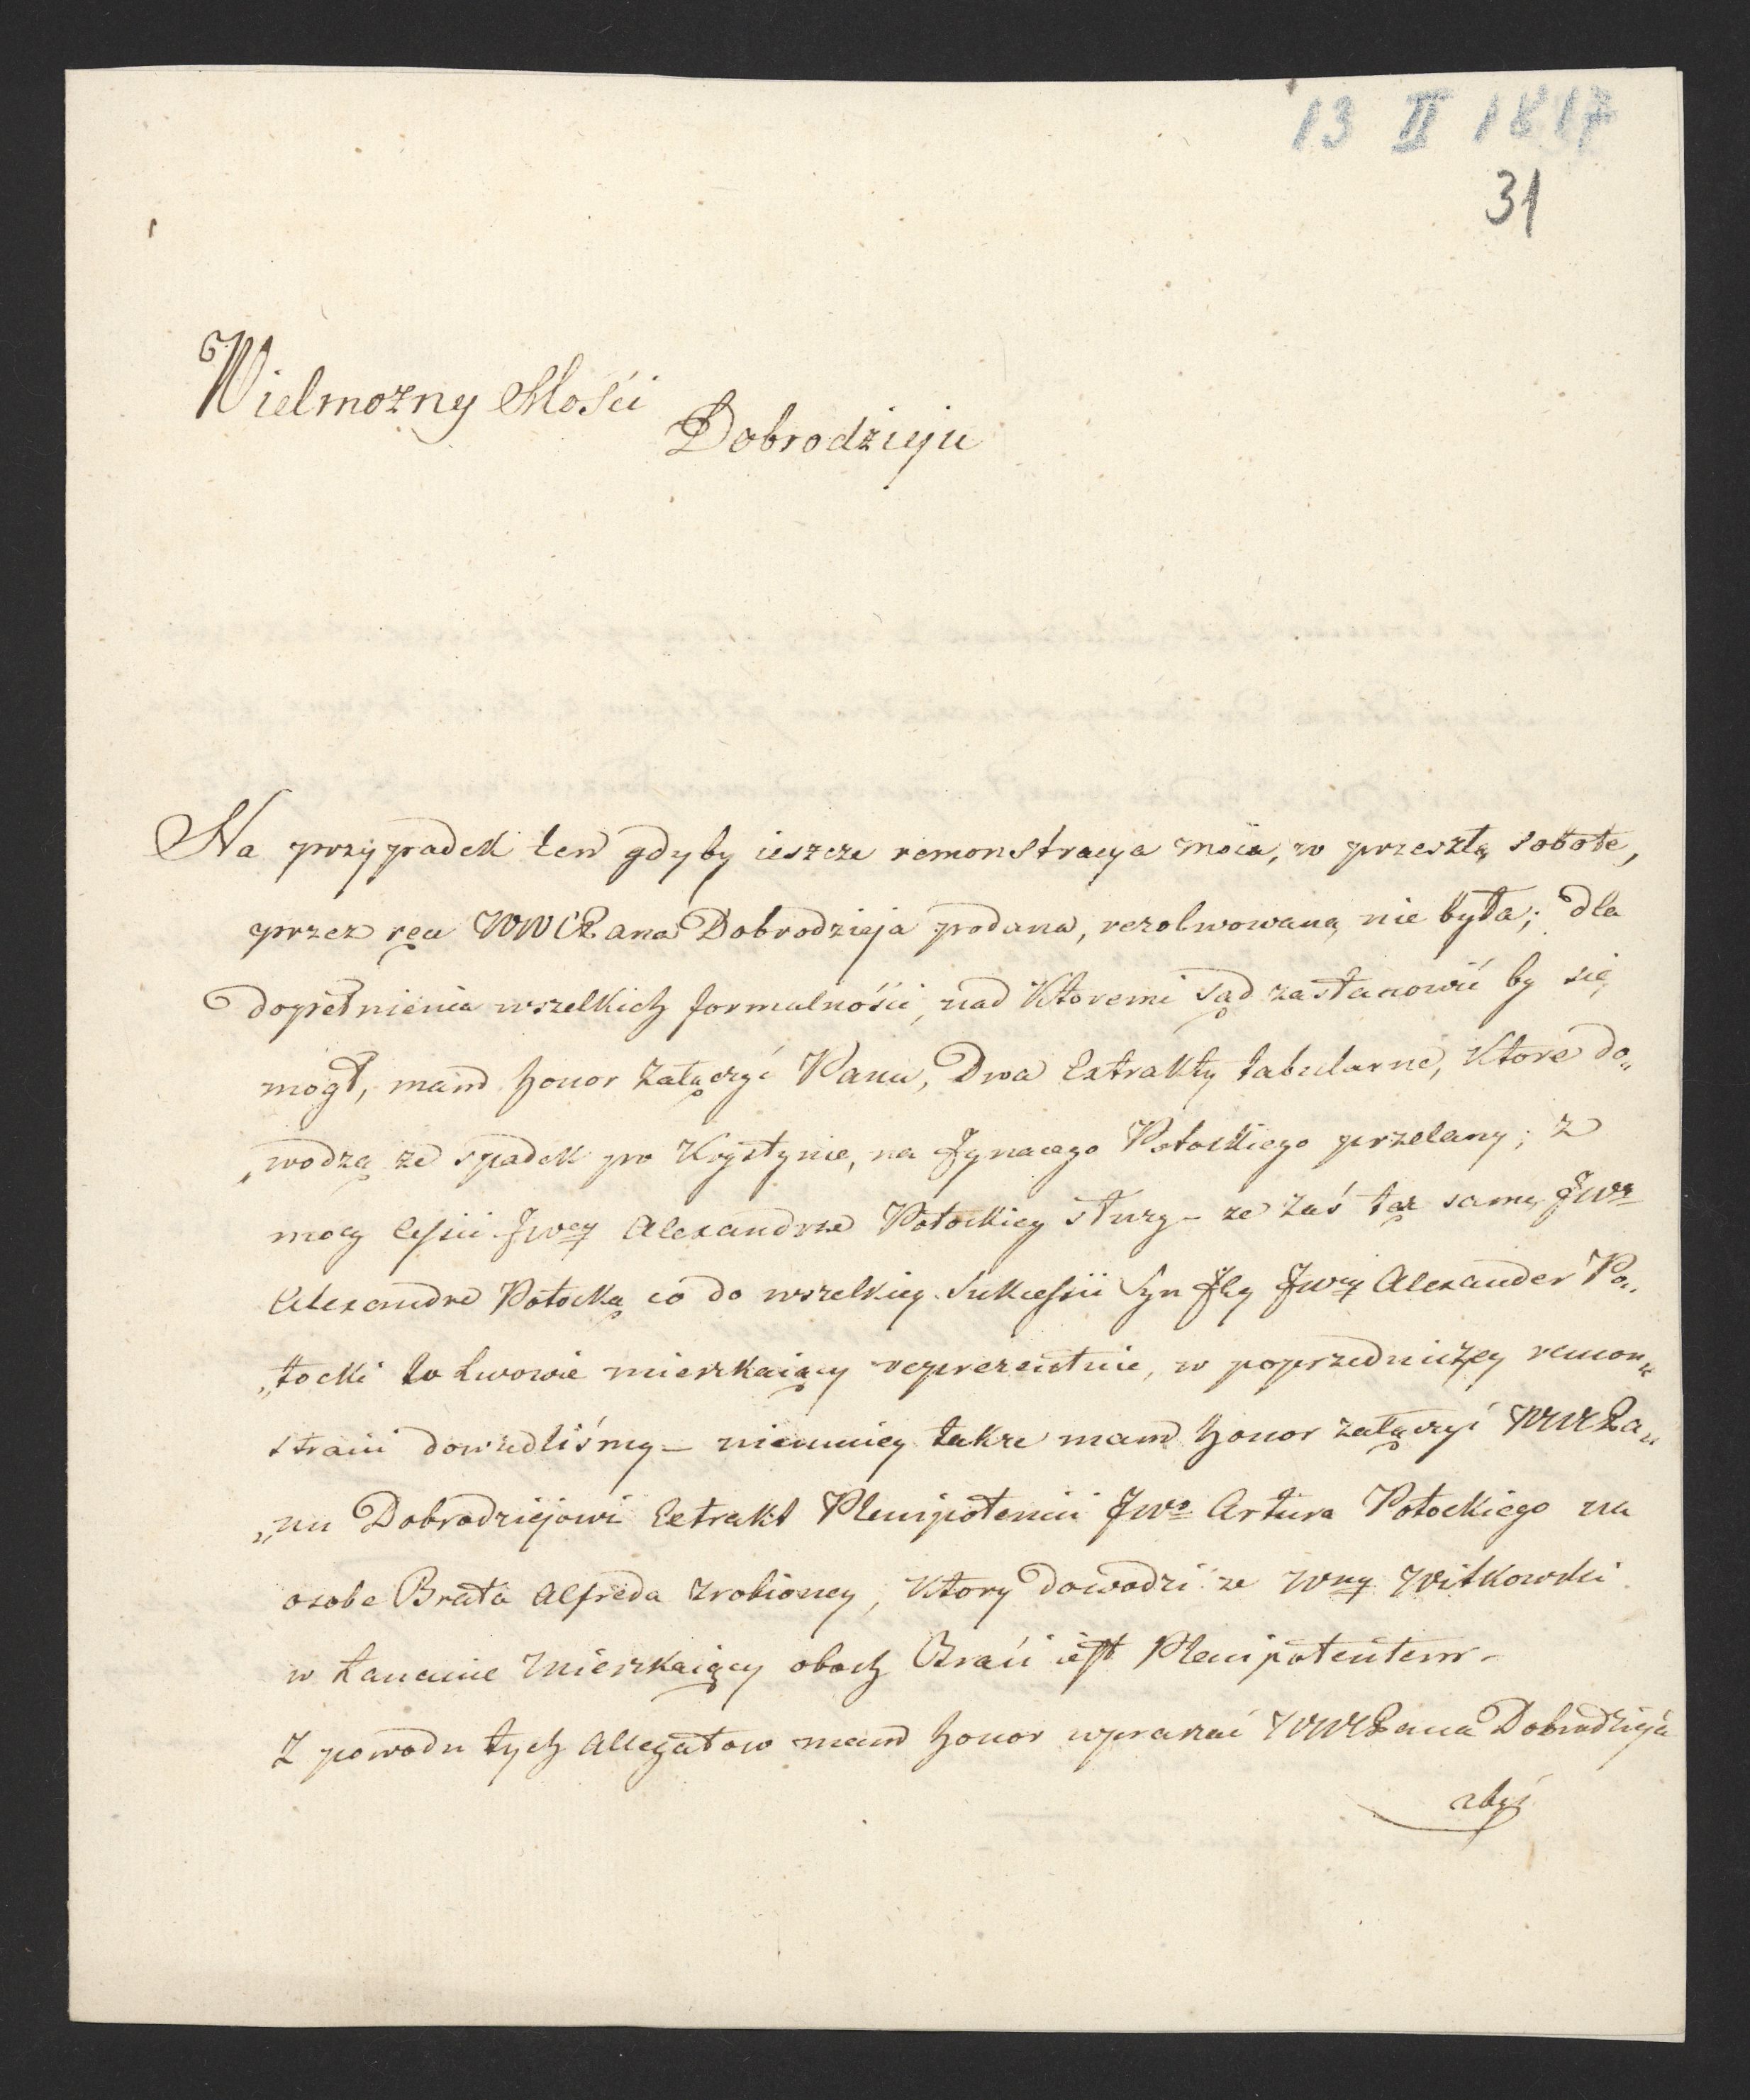 13 II 1817
31
Wielmożny Mości
Dobrodzieju
Na przypadek ten gdyby ieszcze remonstracya moia, w przeszłą sobotę,
przez ręce WWCPana Dobrodzieja podana, rezolwowaną nie była; dla
dopełnienia wszelkich formalności, nad ktoremi sąd zastanowić by się
mógł, mam honor załączyć Panu, Dwa Extrakty tabularne, ktore do„
„wodzą że spadek po Krystynie, na Jgnacego Potockiego przelany; z
mocy cessii Jwey Alexandrze Potockiey służy – że zaś też samę Jwą
Alexandrę Potocką co do wszelkiey sukcessii Syn Jey Jwy Alexander Po„
„tocki we Lwowie mieszkaiący reprezentuie, w poprzedniczey remon„
stracii dowiedliśmy – niemniey także mam honor załączyć WWCPa„
„nu Dobrodziejowi Extrakt Plenipotencii Jwo Artura Potockiego na
osobę Brata Alfreda zrobioney, ktory dowodzi że Wny Witkowski
w Łańcucie mieszkaiący oboch Braci iest Plenipotentem –
Z powodu tych Allegatow mam honor upraszać WWCPana Dobrodzieja
abyś